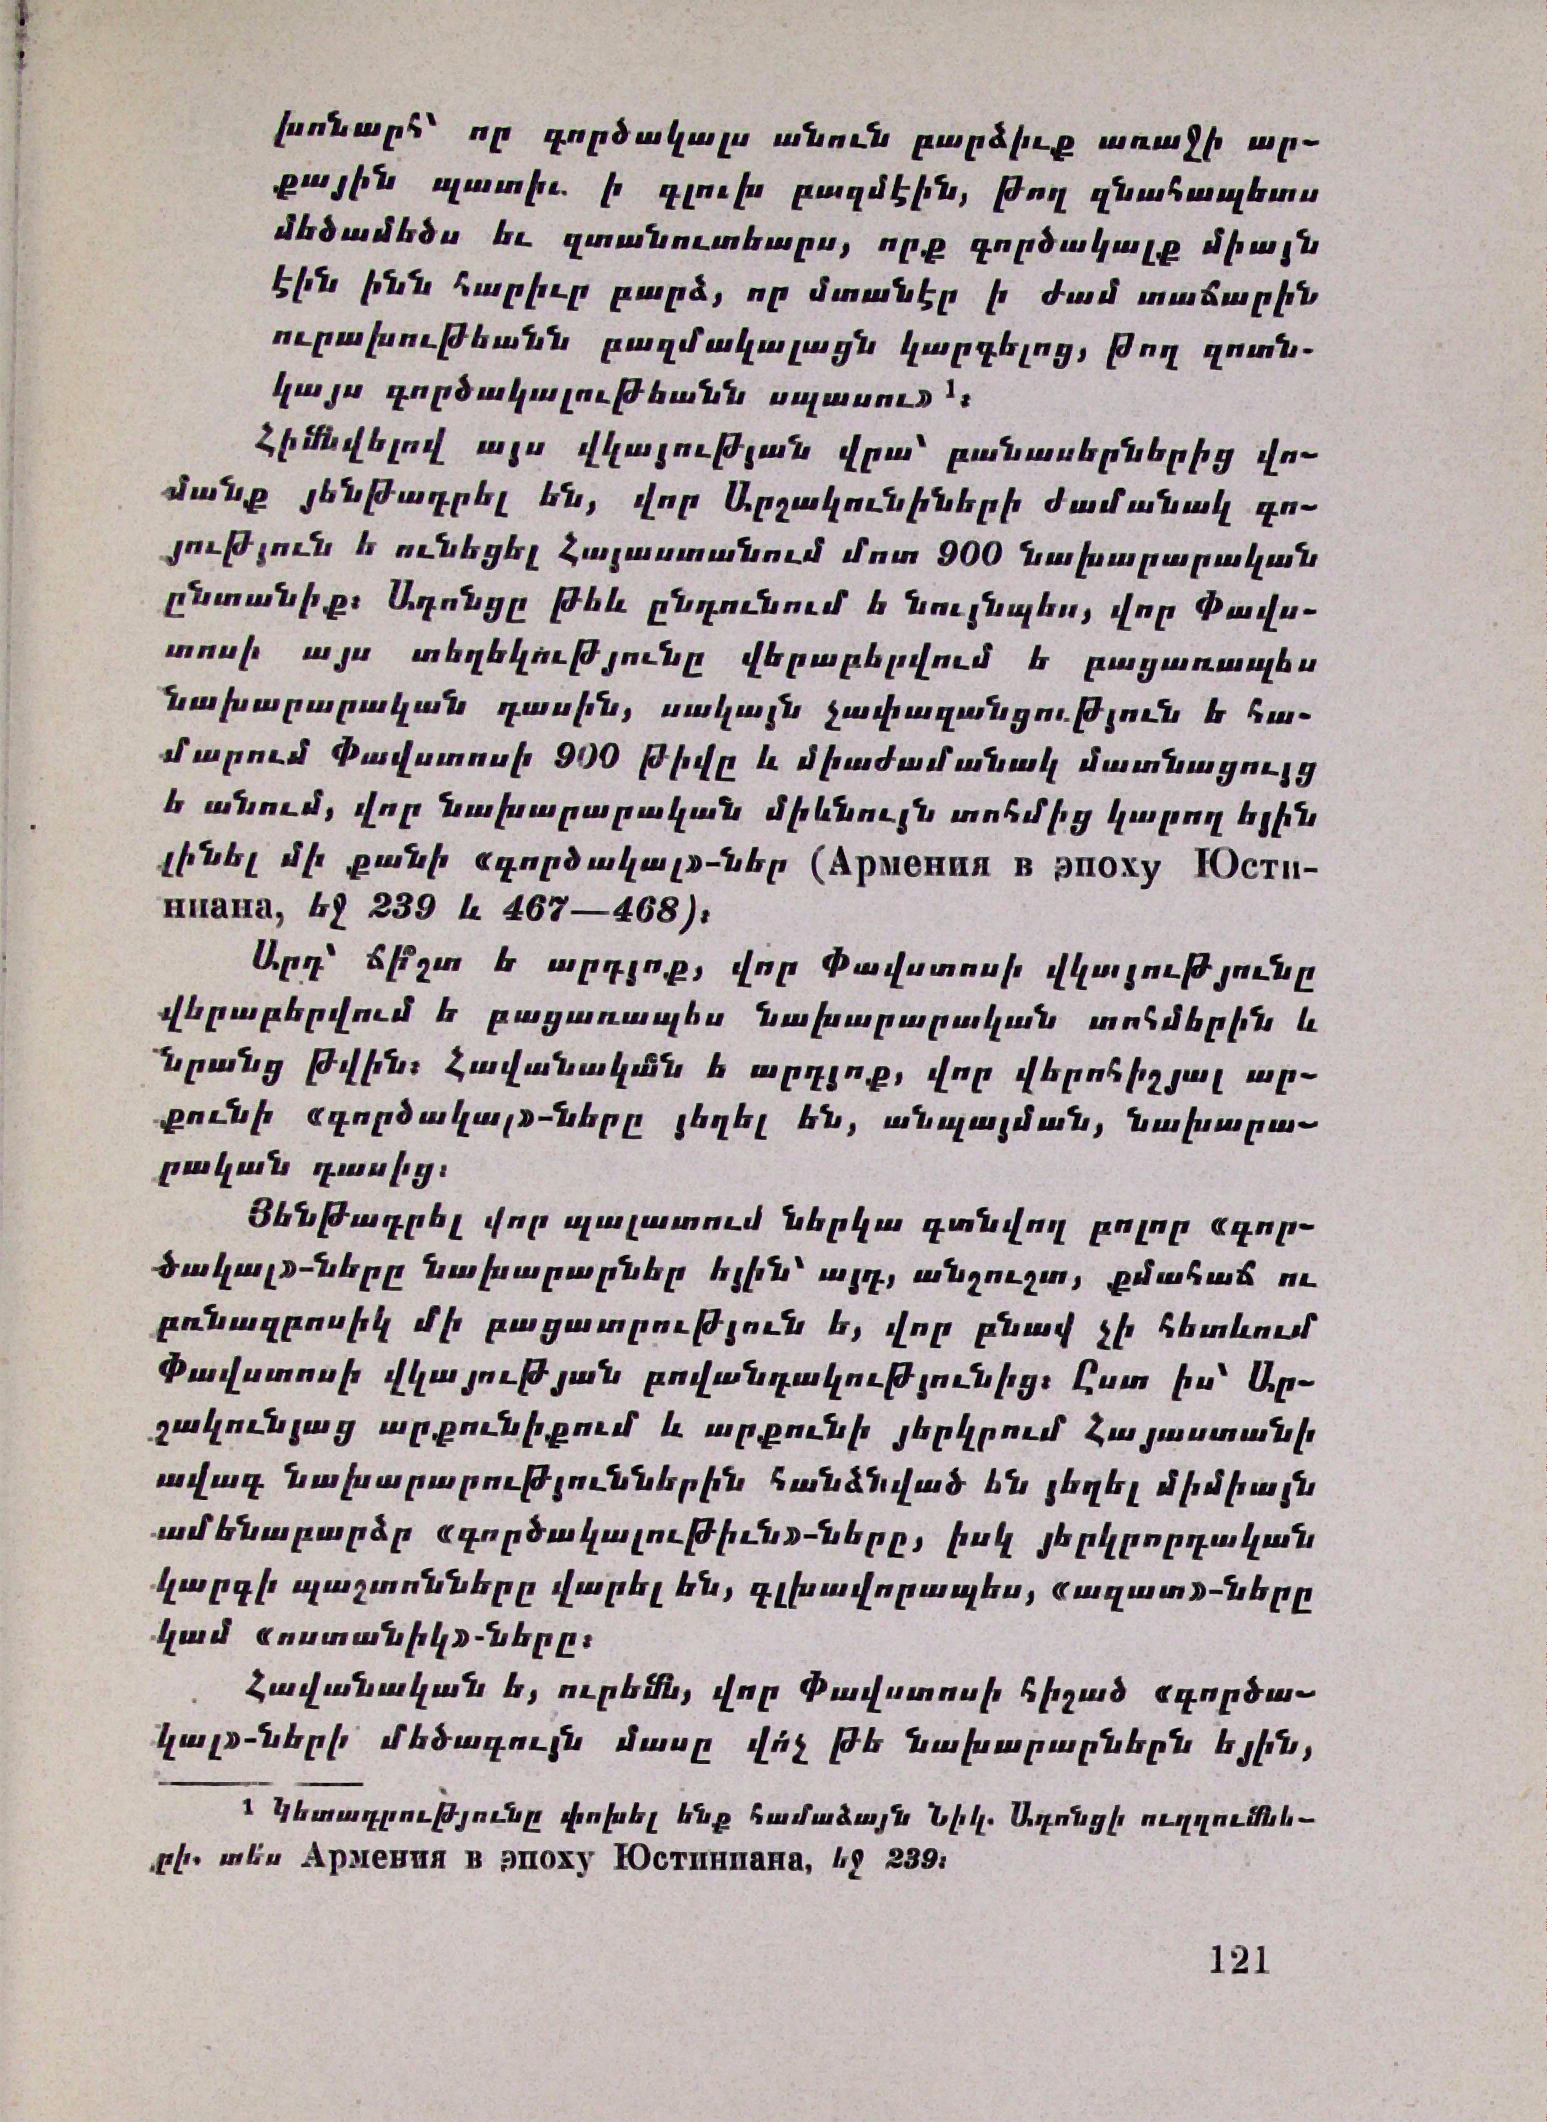 խոնարհ՝ որ գործակալս անուն բարձիւք առաջի ար-
քային պատիւ ի գլուխ բազմէին, թող զնահապետս
մեծամեծս եւ զտանուտեարս, որք գործակալք միայն
էին ինն հարիւր բարձ, որ մտանէր ի ժամ տաճարին
ուրախութեանն բազմակալացն կարգելոց, թող զոտն-
կայս գործակալութեանն սպասու» ¹։
Հիմնվելով այս վկայության վրա՝ բանասերներից վո-
մանք յենթադրել են, վոր Արշակունիների ժամանակ գո-
յություն ե ունեցել Հայաստանում մոտ 900 նախարարական
ընտանիք։ Ադոնցը թեև ընդունում ե նույնպես, վոր Փավս-
տոսի այս տեղեկությունը վերաբերվում ե բացառապես
նախարարական դասին, սակայն չափազանցություն ե հա-
մարում Փավստոսի 900 թիվը և միաժամանակ մատնացույց
ե անում, վոր նախարարական միևնույն տոհմից կարող եյին
լինել մի քանի «գործակալ»-ներ (Армения в эпоху Юсти-
ниана, եջ 239 և 467—468)։
Արդ՝ ճի՞շտ ե արդյոք, վոր Փավստոսի վկայությունը
վերաբերվում ե բացառապես նախարարական տոհմերին և
նրանց թվին։ Հավանակա՞ն ե արդյոք, վոր վերոհիշյալ ար-
քունի «գործակալ»-ները յեղել են, անպայման, նախարա-
րական դասից։
Յենթադրել վոր պալատում ներկա գտնվող բոլոր «գոր-
ծակալ»-ները նախարարներ եյին՝ այդ, անշուշտ, քմահաճ ու
բռնազբոսիկ մի բացատրություն ե, վոր բնավ չի հետևում
Փավստոսի վկայության բովանդակությունից։ Ըստ իս՝ Ար-
շակունյաց արքունիքում և արքունի յերկրում Հայաստանի
ավագ նախարարություններին հանձնված են յեղել միմիայն
ամենաբարձր «գործակալութիւն»-ները, իսկ յերկրորդական
կարգի պաշտոնները վարել են, գլխավորապես, «ազատ»-ները
կամ «ոստանիկ»-ները։
Հավանական ե, ուրեմն, վոր Փավստոսի հիշած «գործա-
կալ»-ների մեծագույն մասը վո՛չ թե նախարարներն եյին,
¹ Կետադրությունը փոխել ենք համաձայն Նիկ. Ադոնցի ուղղումնե-
րի. տե՛ս Армения в эпоху Юстиниана, եջ 239։
121